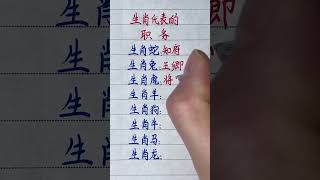 生肖代表的
职务
生肖蛇:知府
生肖兔:王卿
生肖虎:将
生肖羊:
生肖狗:
生肖牛:
生肖马:
生肖龙: